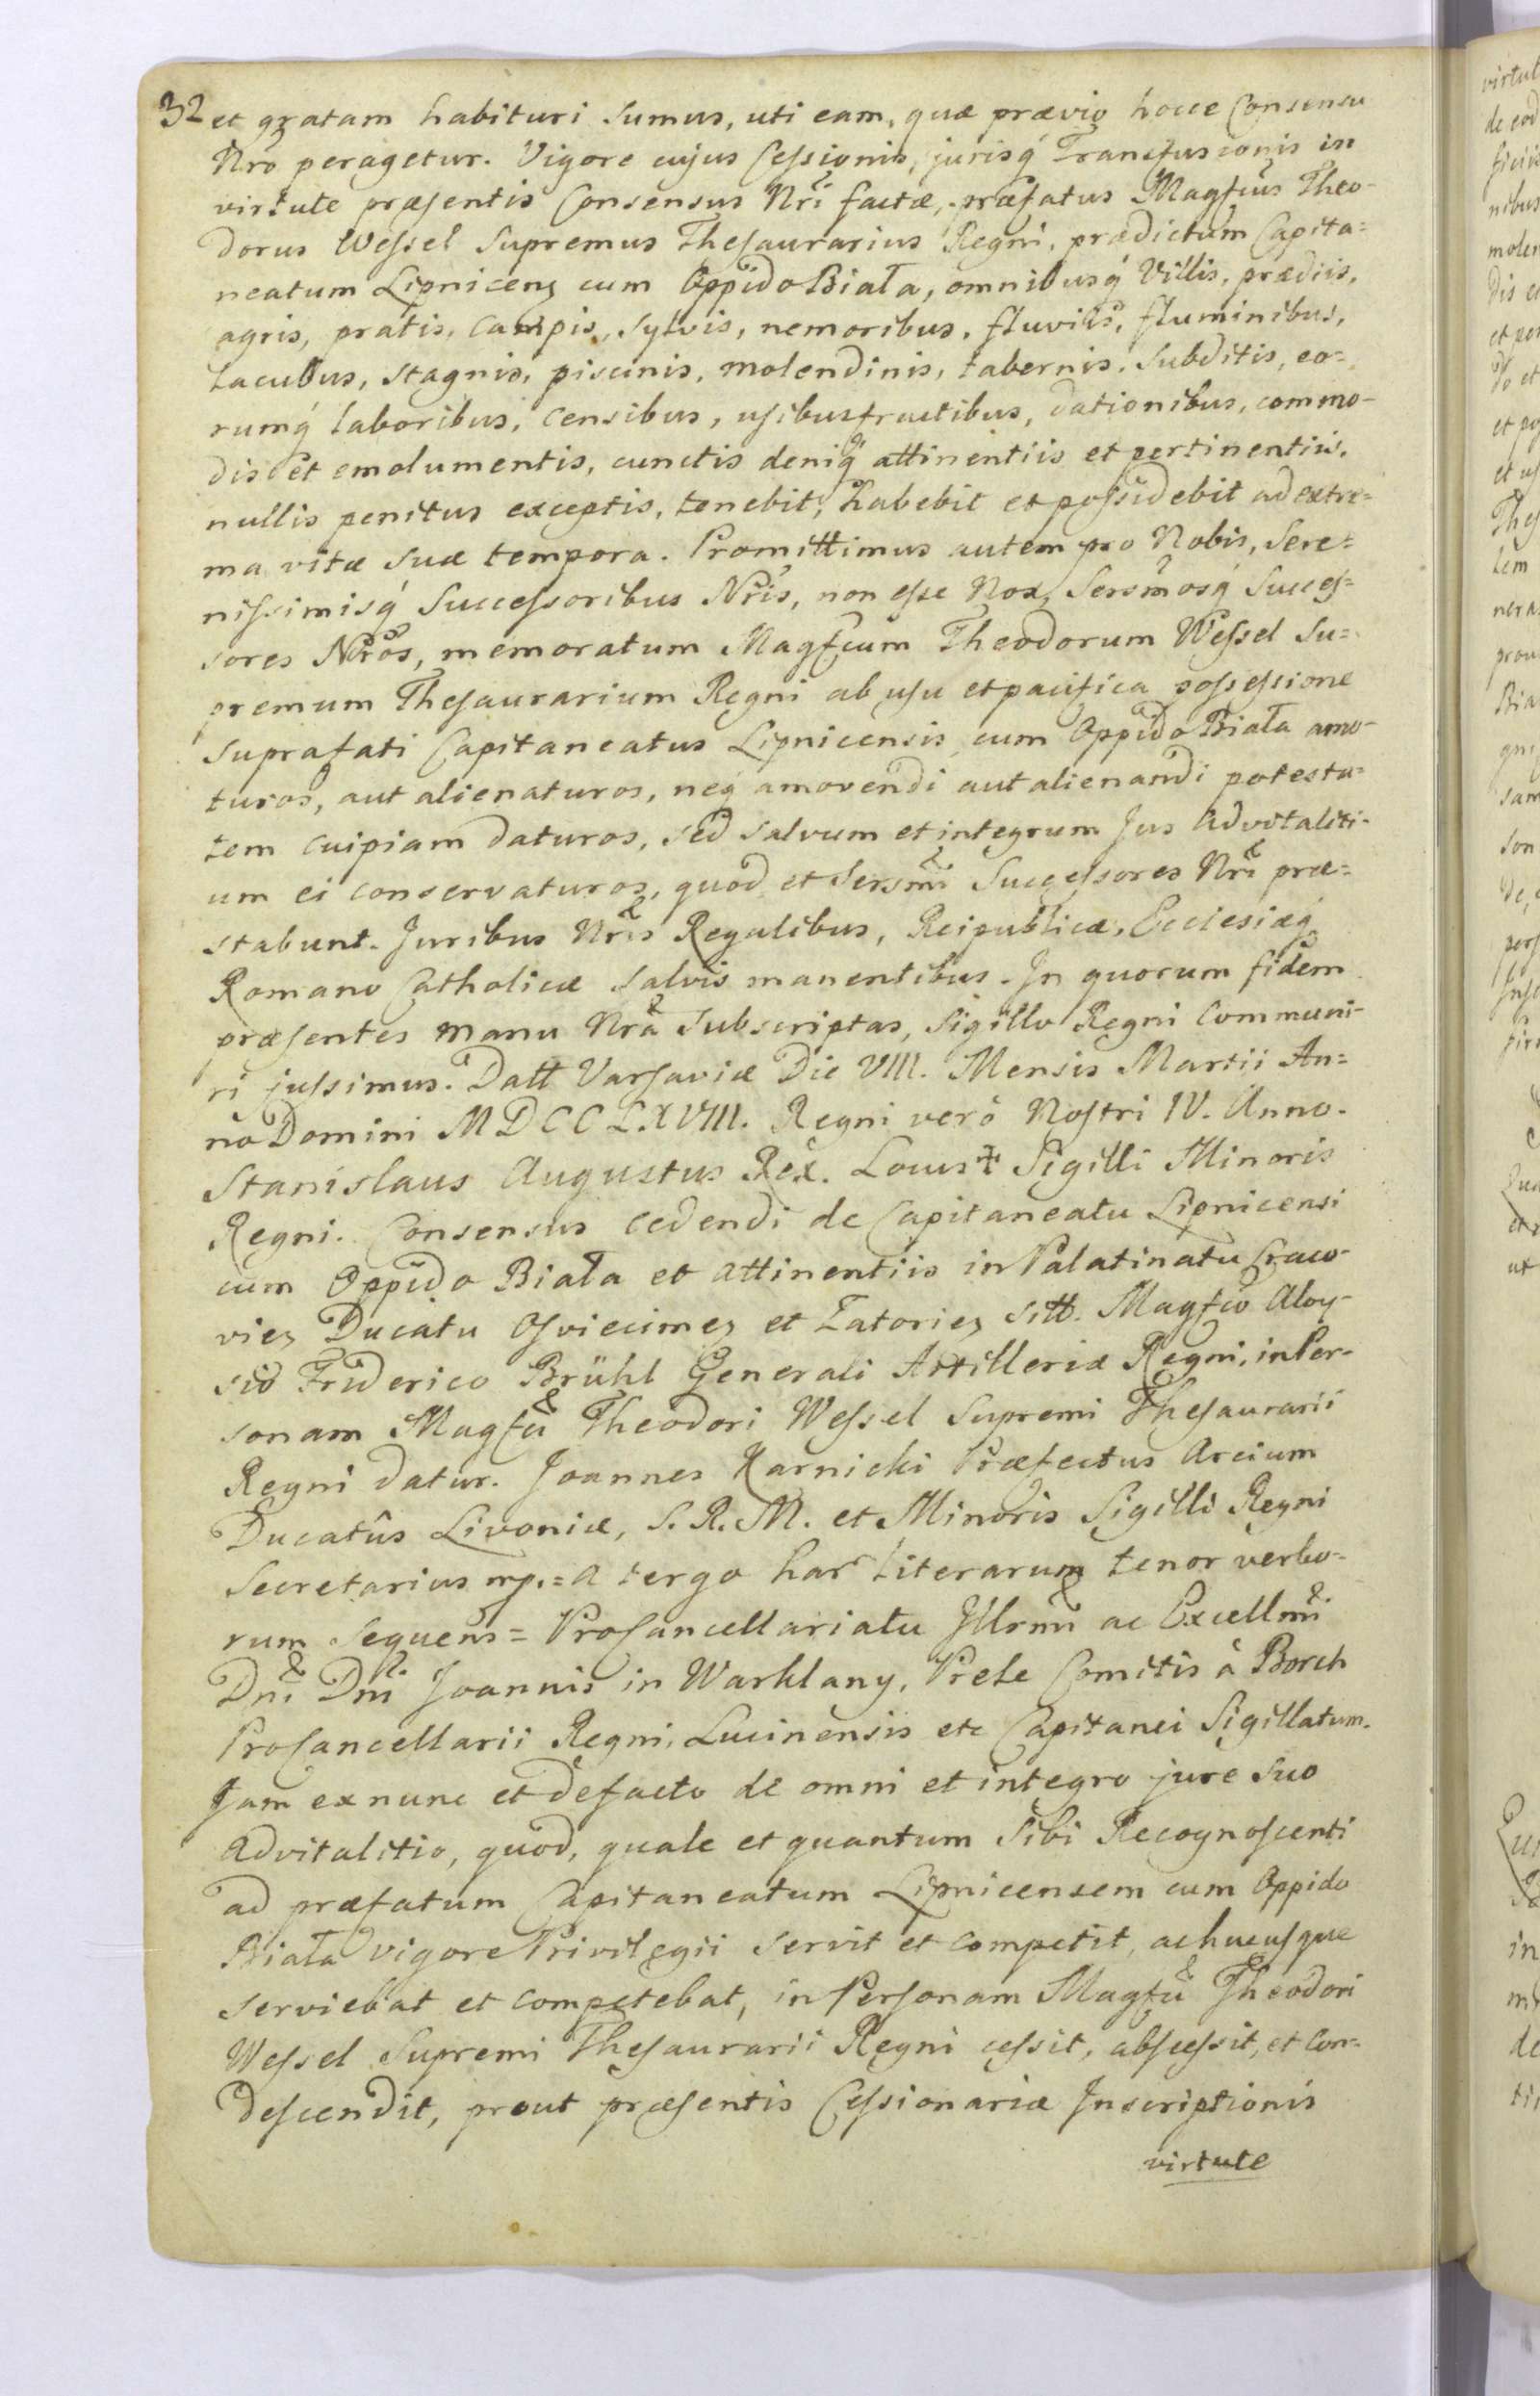 32 et gratam habituri sumus, uti eam, quæ prævio hocce Consensu
Nrõ peragetur. Vigore cujus Cessionis, jurisq́ Transfusionis in
virtute præsentis Consensus Nrĩ factæ, præfatus Magfcus Theo-
dorus Wessel Supremus Thesaurarius Regni, prædictum Capita=
neatum Lipnicenz cum Oppido Biała, omnibusq́ Villis, prædiis,
agris, pratis, campis, sylvis, nemoribus, fluviis, fluminibus,
lacubus, stagnis, piscinis, molendinis, tabernis, subditis, eo=
rumq́ laboribus, censibus, usibusfructibus, dationibus, commo-
dis et emolumentis, cunctis deniq́ attinentiis et pertinentiis,
nullis penitus exceptis, tenebit, habebit et possidebit ad extre=
ma vitæ suæ tempora. Promittimus autem pro Nobis, Sere=
nissimisq́ Successoribus Nrĩs, non esse Nos, Sersmosq́ Succes=
sores Nrõs, memoratum Magfcum Theodorum Wessel Su=
premum Thesaurarium Regni ab usu et pacifica possessione
suprafati Capitaneatus Lipnicensis cum Oppido Biała amo-
turos, aut alienaturos, neq́ amovendi aut alienandi potesta=
tem cuipiam daturos, sed salvum et integrum Jus Advitaliti-
um ei conservaturos, quod et Sersmi Successores Nrĩ præ=
stabunt. Juribus Nrĩs Regalibus, Reipublicæ, Ecclesiæq́
Romano Catholicæ salvis manentibus. In quorum fidem
præsentes manu Nrã subscriptas, Sigillo Regni communi-
ri jussimus. Datt Varsaviæ Die VIII. Mensis Martii An=
no Domini MDCCLXVIII. Regni verò Nostri IV. Anno.
Stanislaus Augustus Rex. Locus ✝ Sigilli Minoris
Regni. Consensus cedendi de Capitaneatu Lipnicensi
cum Oppido Biała et attinentiis in Palatinatu Craco-
viez Ducatu Osviecimez et Zatoriez sitt. Magfco Aloy-
sio Friderico Brühl Generali Artilleriæ Regni, in Per-
sonam Magfci Theodori Wessel Supremi Thesaurarii
Regni datur. Joannes Karnicki Præfectus Arcium
Ducatûs Livoniæ, S. R. M. et Minoris Sigilli Regni
Secretarius mp. = A tergo har Literarum tenor verbo-
rum sequens = Procancellariatu Illrmi ac Excellmi
Dni Dni Joannis in Warklany, Prele Comitis à Borch
Procancellarii Regni, Lucinensis etc Capitanei Sigillatum.
Jam ex nunc et defacto de omni et integro jure suo
advitalitio, quod, quale et quantum sibi Recognoscenti
ad præfatum Capitaneatum Lipnicensem cum Oppido
Biała vigore Privilegii servit et competit, ac hucusque
serviebat et competebat, in Personam Magfci Theodori
Wessel Supremi Thesaurarii Regni cessit, abscessit, et con=
descendit, prout præsentis Cessionariæ Inscriptionis
virtute